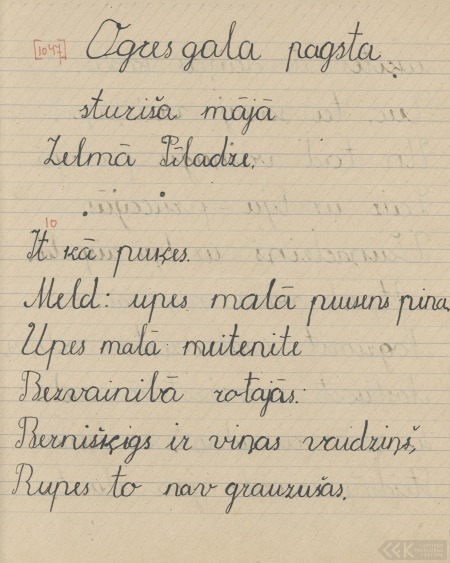 [1047] Ogresgala pagsta
sturiša mājā
Zelmā Pīladze.
10
It kā puķes.
Meld: upes malā puusens pina,
Upes malā meitenite
Bezvainibā rotajās.
Bernišķigs ir viņas vaidziņš,
Rupes to nav grauzušas.